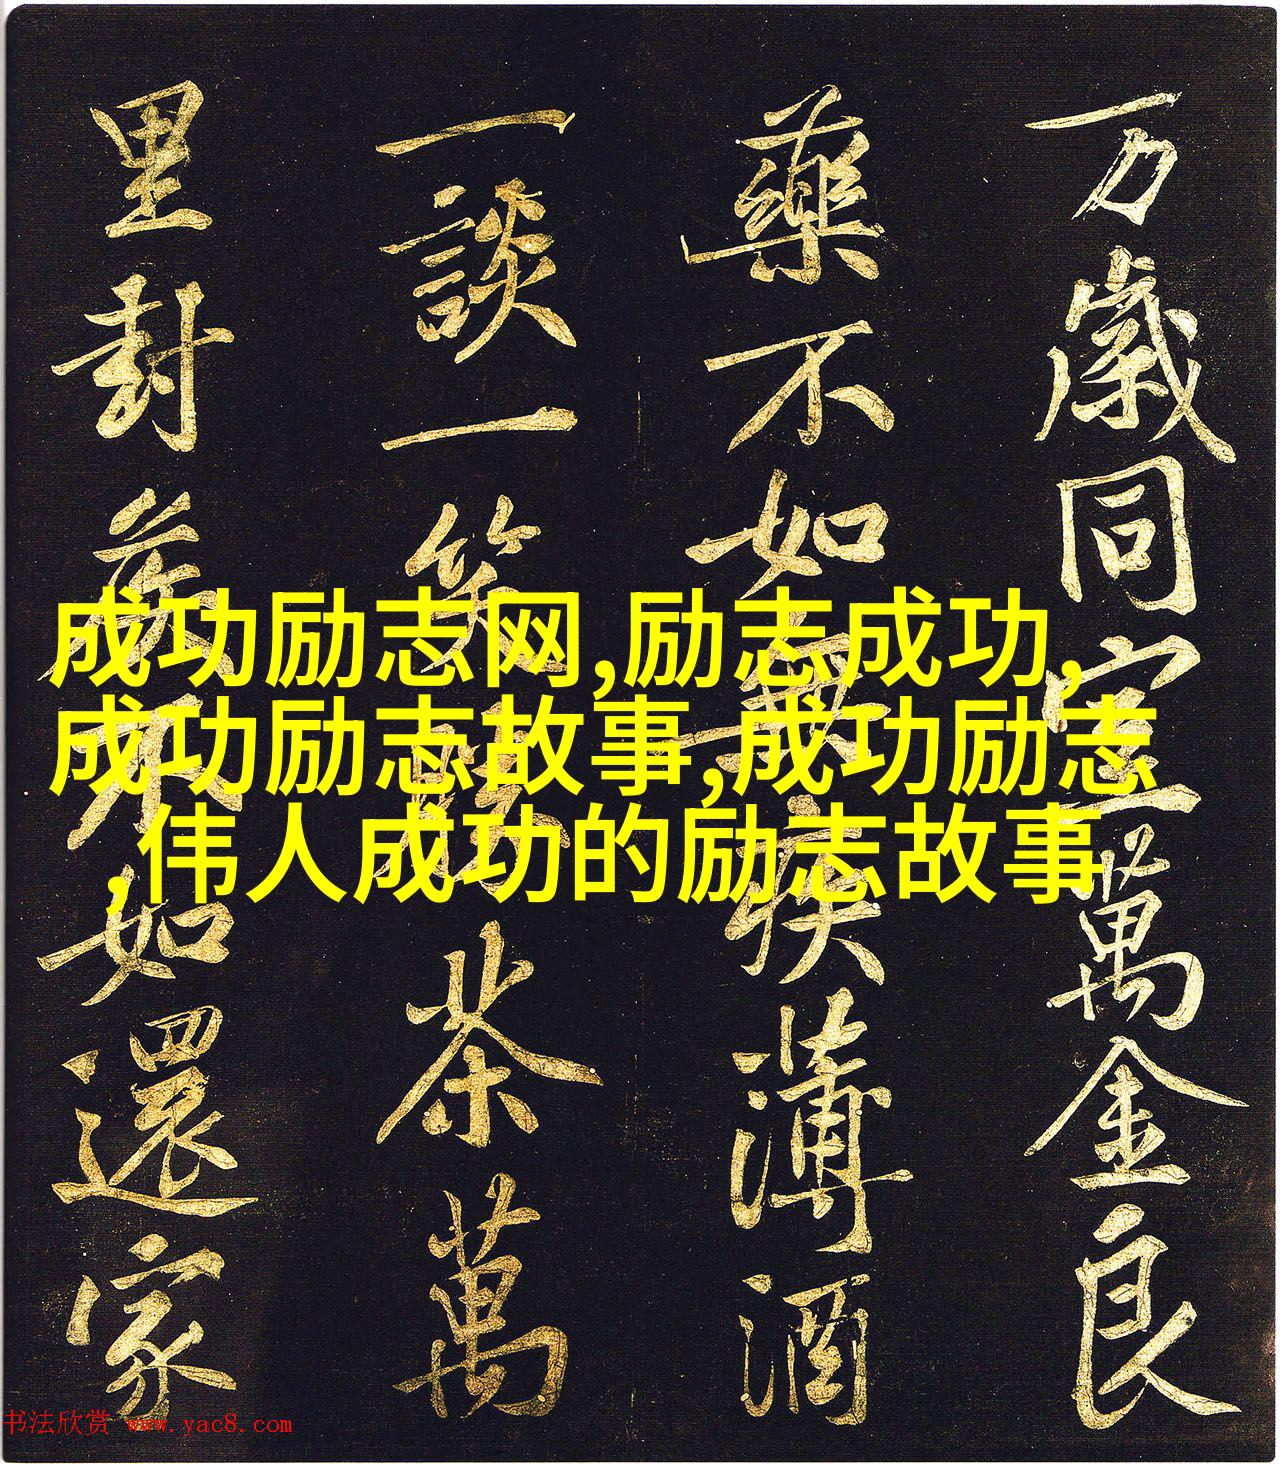 万歲同室萬金良
藥不如無疾薄酒
一談一笑勝茶萬
里封矦不如還家
成功励志网,励志成功,
成功励志故事,成功励志
,伟人成功的励志故事
书法欣赏 www.yac8.com